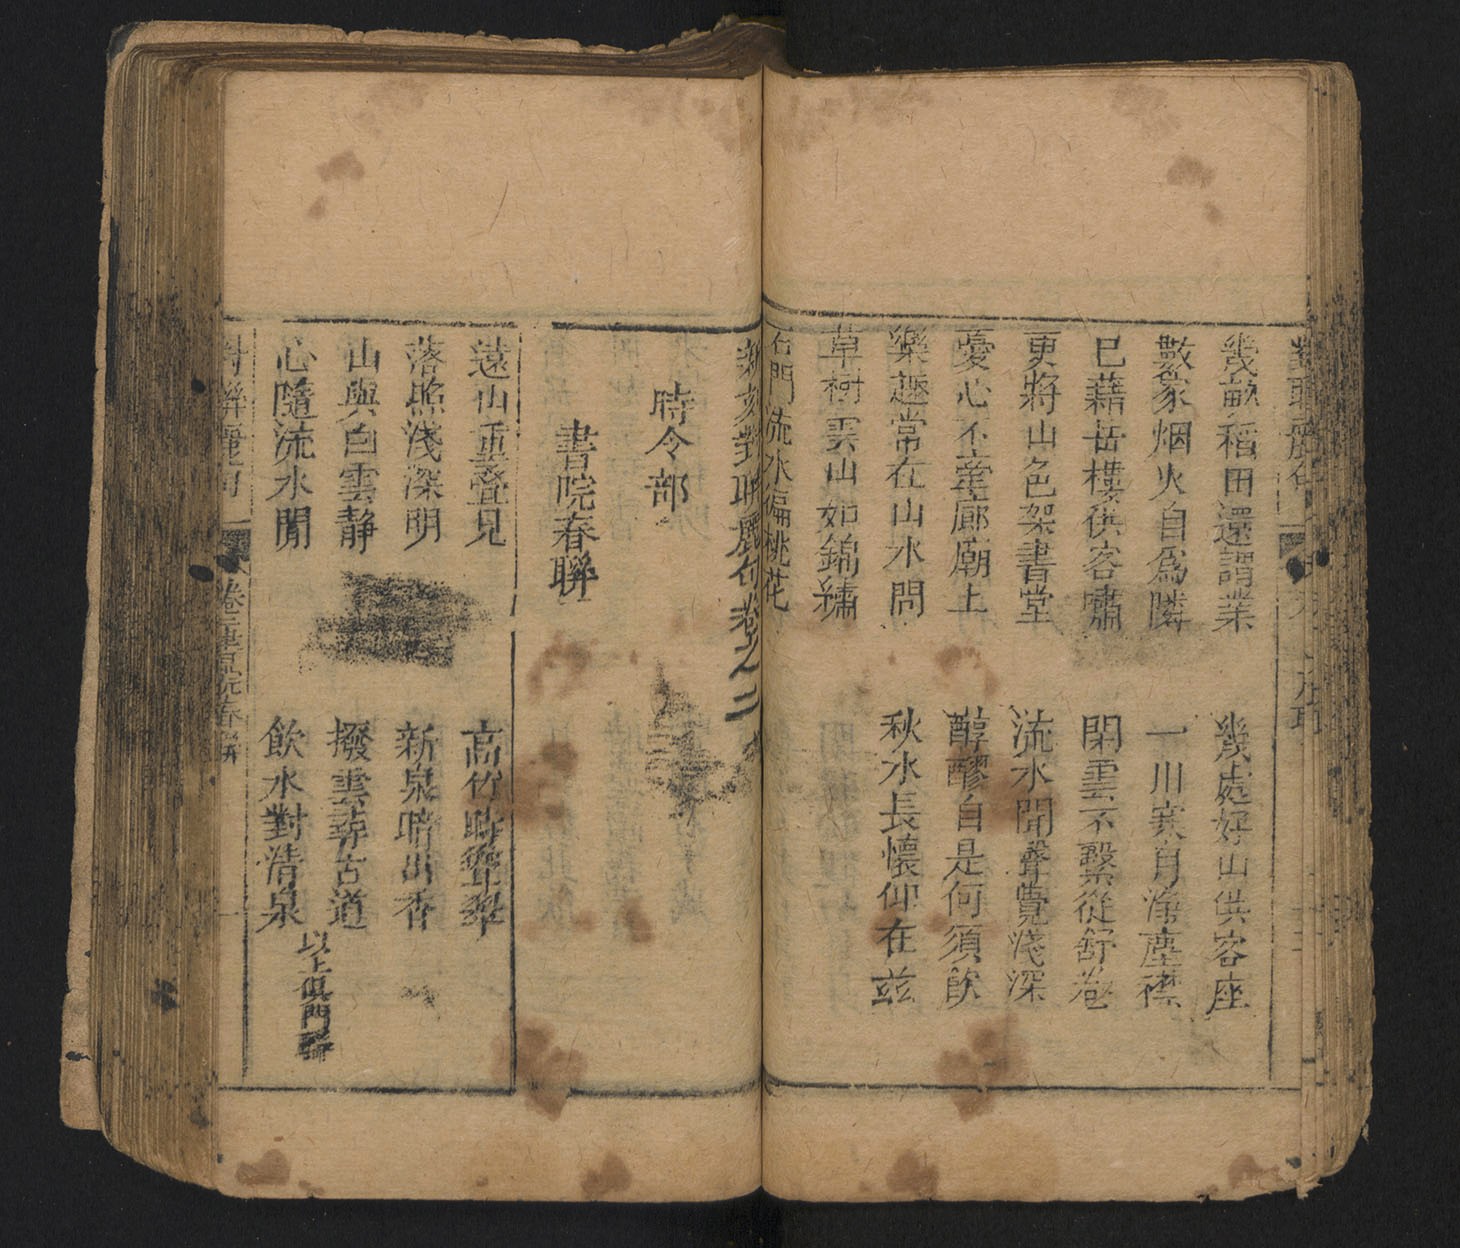 幾畝稻田還謂業
幾處好山供客座
數家烟火自爲隣
一川寒月淨塵襟
已藉岳樓供客嘯
閑雲不繫從舒卷
更將山色架書堂
流水聞聲覺淺深
憂心不塞廊廟上
醇醪自是何須飲
樂趣常在山水問
秋水長懷仰在兹
草樹雲山如錦繡
石門流水徧桃花
新刻對聯麗句卷之二
時令部
書院春聯
遠山重疊見
高竹時聳翠
落照淺深明
新泉暗出香
山與白雲静
撥雲尋古道
心隨流水閒
飲水對浩泉
以上俱門聯
對聯麗句
卷二書院春聯